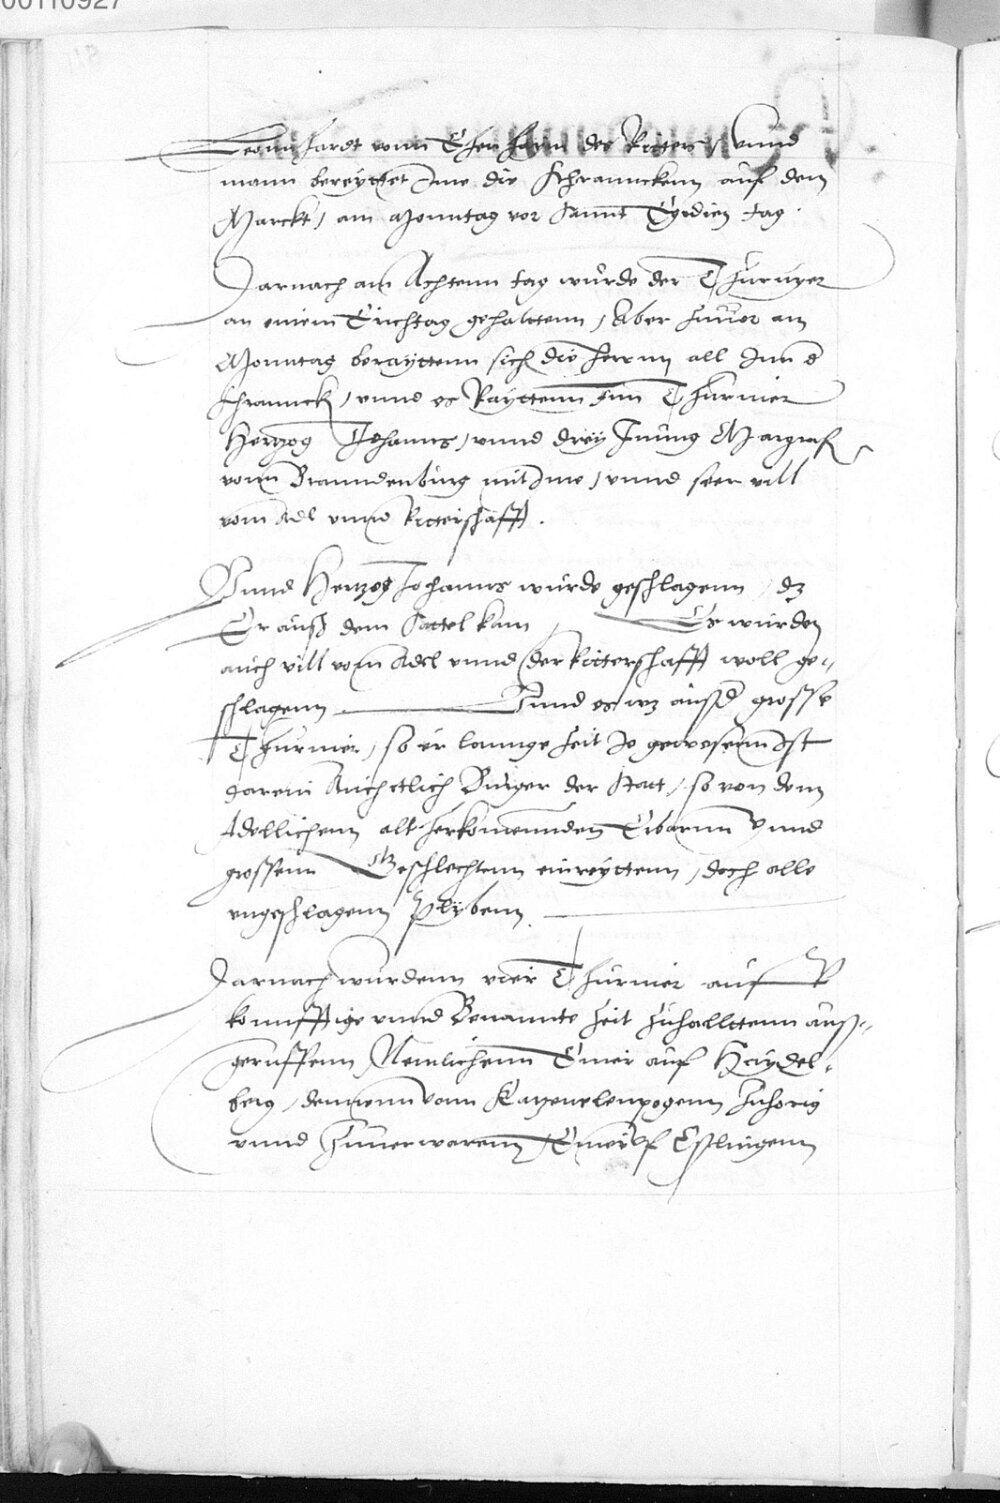 00110927
Leonnhardt vonn Ehenheim der Ritter / vnnd
mann bereyttet Ime die Schrannckenn auf dem
Marckt / am Monntag vor Sannt Egidien tag.
Darnach am Achtenn tag wurde der Thurnyer
an einem Erichtag gehalttenn / Aber zuuor am
Monntag berayttenn sich die herrnn all Inn d
schrannck / vnnd es Rayttenn Inn Thurnier
Hertzog Johanns / vnnd drey Junng Margraf
vonn Branndenburg mit Ime / vnnd seer vill
vom Adl vnnd Ritterschafft.
Vnnd Hertzog Johanns wurde geschlagenn, dz
Er auß dem Sattel kam, Es wurden
auch vill vom Adel vnnd der Ritterschafft woll ge-
schlagenn Vnnd es wz grosse
Thurnier, so vor lannge zeit Je gewesenn Ist
Darein Auch etlich Burger der Statt, so von dem
Adellichenn alt herkomennden Erbarnn Vnnd
grossenn Geschlechtenn einreyttenn, doch alle
vngeschlagenn plybenn.
Darnach wurdenn vier Thurnier auf
konnfftige vnnd Benannte zeit zuhallttenn auß-
geruffenn Nemlichenn Einer auf Haydel-
berg, dennenn vonn Katzenelenpogenn zuhorig
vnnd warenn, Einer vf Esslingenn